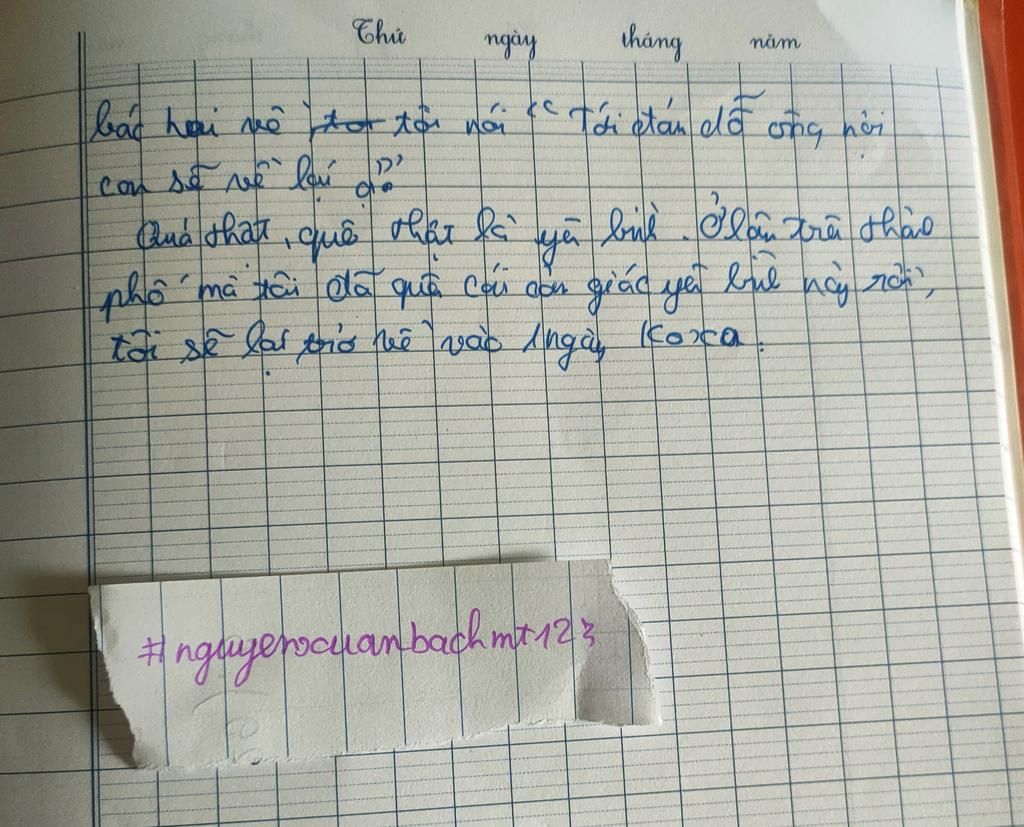 Thứ ngày tháng năm
bác hai về tôi nói " Tới đám dỗ ông nội
con sẽ về lại ạ"
Quả thật, quê thật là yên bình. Ở lâu trên thành
phố mà tôi đã quên cái cảm giác yên bình này rồi,
tôi sẽ lại trở về vào 1 ngày ko xa.
#nguyenxuanbachmt123